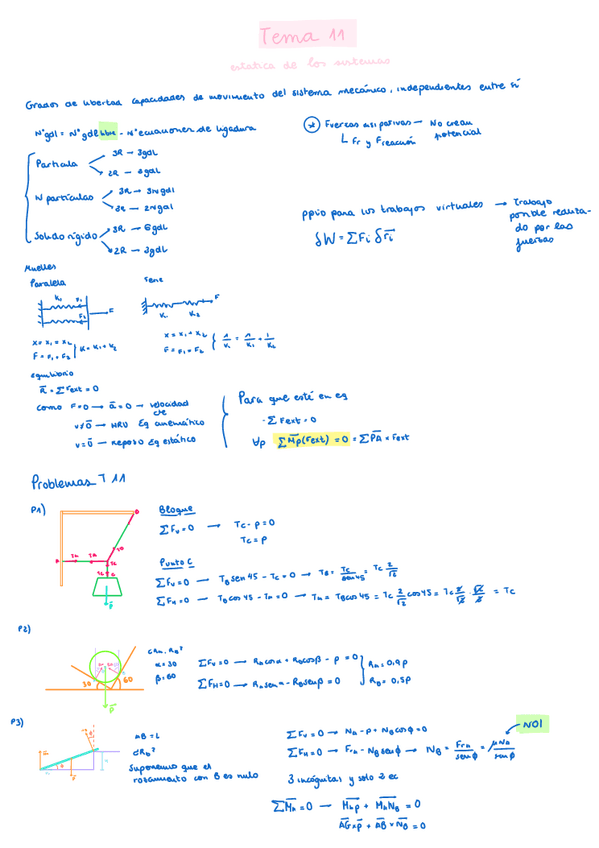 Tema 11
estatica de los sistemas
Grados de libertad capacidades de movimiento del sistema mecánico, independientes entre sí
Nºgdl = Nº gdl libre - Nº ecuaciones de ligadura
Partícula
3R → 3gdl
2R → 2gdl
N partículas
3R → 3N gdl
2R → 2N gdl
Sólido rígido
3R → 6gdl
2R → 3gdl
* Fuerzas disipativas → No crean potencial
Fr y Freacción
ppio para los trabajos virtuales → Trabajo
posible realiza-
do por las
fuerzas
δW = ΣFi δri
Muelles
Paralela
Serie
K1 F1
F2
F
K1 K2
F
x = x1 = x2
F = F1 + F2
K = K1 + K2
x = x1 + x2
F = F1 = F2
1/K = 1/K1 + 1/K2
equilibrio
a = ΣFext = 0
como F=0 → a=0 → velocidad cte
v≠0 → MRU Eq cinemático
v=0 → Reposo Eq estático
Para que esté en eq
- ΣFext = 0
∀p ΣMp(Fext) = 0 = ΣPA × Fext
Problemas T 11
P1)
Bloque
ΣFv=0 → Tc - P = 0
Tc = P
Punto C
ΣFv=0 → TB sen 45 - Tc = 0 → TB = Tc/sen45 = Tc 2/√2
ΣFH=0 → TB cos 45 - TA = 0 → TA = TB cos 45 = Tc 2/√2 cos45 = Tc 2/√2 · √2/2 = Tc
P2)
30
60
P
¿RA, RB?
α=30
β=60
ΣFv=0 → RA cosα + RB cosβ - P = 0
ΣFH=0 → RA senα - RB senβ = 0
RA = 0,9P
RB = 0,5P
P3)
AB = L
¿RB?
Suponemos que el
rozamiento con B es nulo
ΣFv=0 → NA - P + NB cosϕ = 0
ΣFH=0 → FrA - NB senϕ → NB = FrA/senϕ = μNA/senϕ
NO!
3 incógnitas y solo 2 ec
ΣMA = 0 → MAP + MANB = 0
AG × P + AB × NB = 0